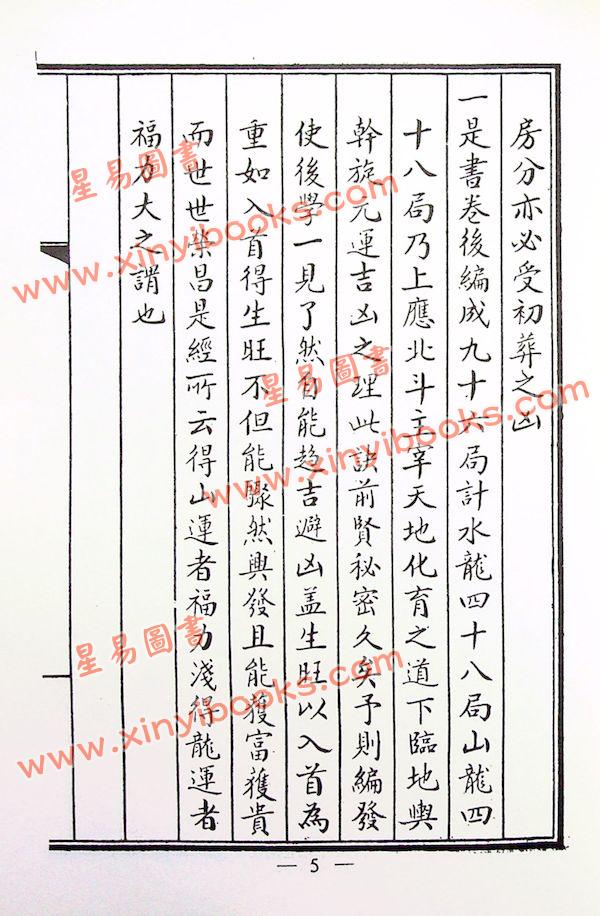 房分亦必受初葬之凶
一是書卷後編成九十六局計水龍四十八局山龍四
十八局乃上應北斗主宰天地化育之道下臨地輿
幹旋元運吉凶之理此訣前賢秘密久矣予則編發
使後學一見了然自能趨吉避凶盖生旺以入首為
重如入首得生旺不但能驟然興發且能獲富獲貴
而世世榮昌是經所云得山運者福力淺得龍運者
福力大之謂也
— 5 —
星易圖書
www.xinyibooks.com
星易圖書
www.xinyibooks.com
星易圖書
www.xinyibooks.com